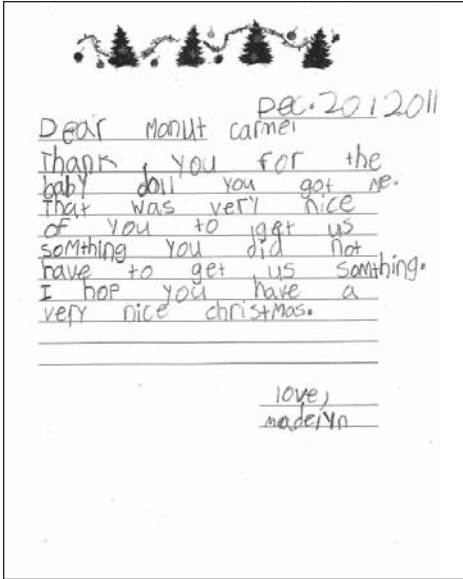 Dec. 20 2011
Dear Monut carmel
Thank you for the
baby doll you got me.
That was very nice
of you to get us
somthing you did not
have to get us somthing.
I hop you have a
very nice christmas.
love,
madelyn